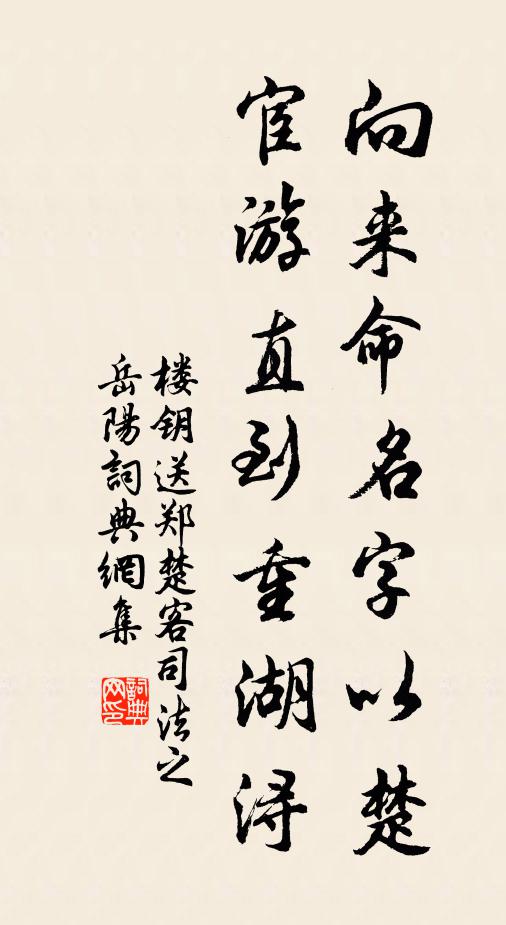 向来命名字以楚
宦游直到重湖浔
楼钥送郑楚客司法之
岳陽詞典網集
詞典网印